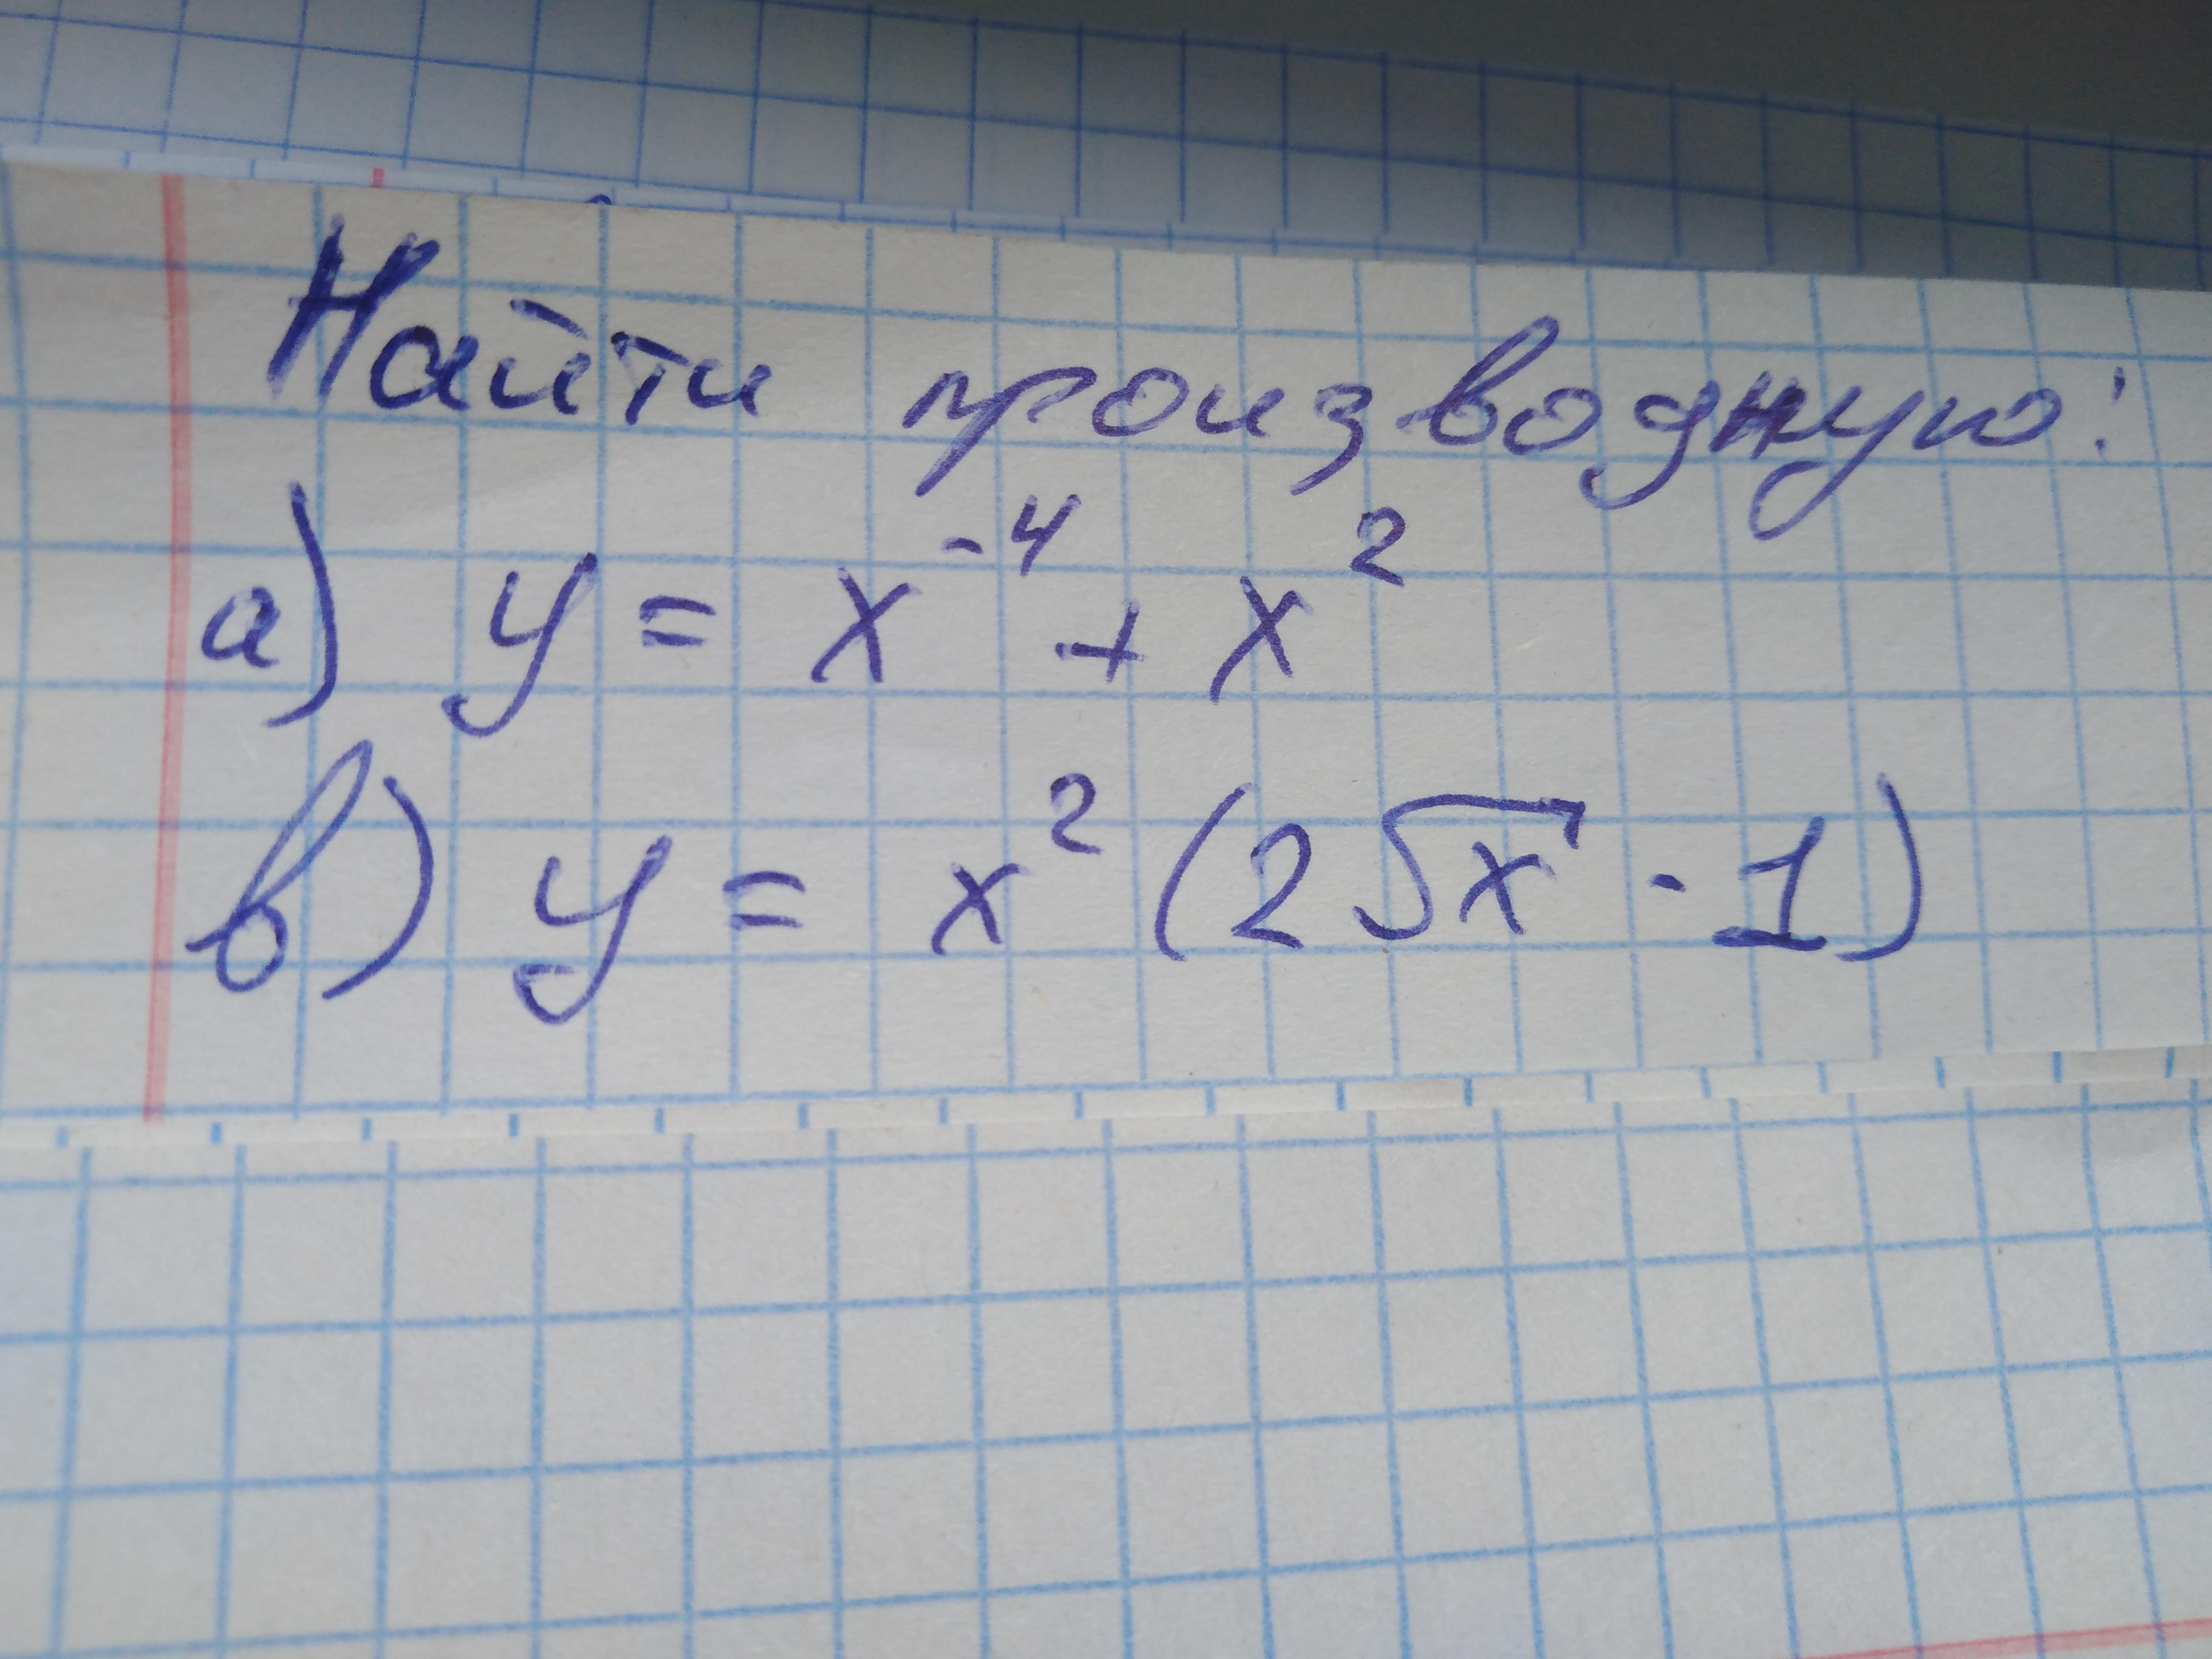 Найти производную:
а) y = x⁻⁴ + x²
в) y = x² (2√x - 1)